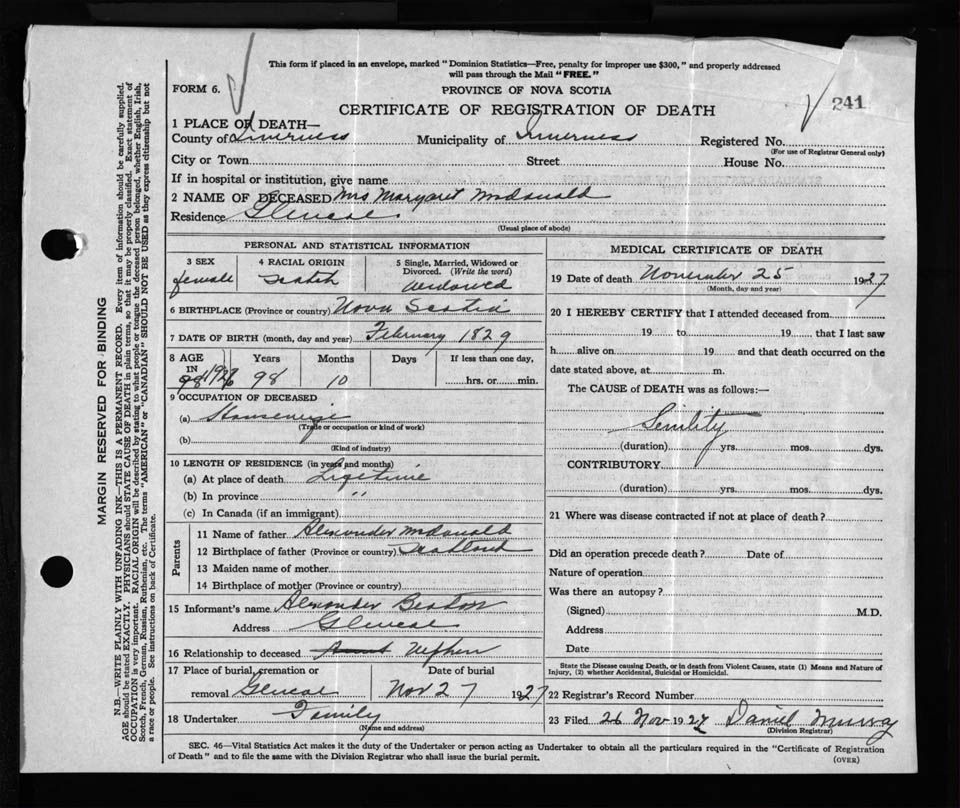 This form if placed in an envelope, marked "Dominion Statistics—Free, penalty for improper use $300," and properly addressed
will pass through the Mail "FREE."
FORM 6.
PROVINCE OF NOVA SCOTIA
CERTIFICATE OF REGISTRATION OF DEATH
241
1 PLACE OF DEATH—
County of Inverness Municipality of Inverness Registered No.
(For use of Registrar General only)
City or Town Street House No.
If in hospital or institution, give name
2 NAME OF DECEASED Mrs Margaret McDonald
Residence Glencoe
(Usual place of abode)
PERSONAL AND STATISTICAL INFORMATION
3 SEX 4 RACIAL ORIGIN 5 Single, Married, Widowed or
Divorced. (Write the word)
female Scotch widowed
6 BIRTHPLACE (Province or country) Nova Scotia
7 DATE OF BIRTH (month, day and year) February 1829
8 AGE Years Months Days If less than one day,
IN
98 10 hrs. or min.
9 OCCUPATION OF DECEASED
(a) Housewife
(Trade or occupation or kind of work)
(b)
(Kind of industry)
10 LENGTH OF RESIDENCE (in years and months)
(a) At place of death Lifetime
(b) In province "
(c) In Canada (if an immigrant)
Parents
11 Name of father Alexander McDonald
12 Birthplace of father (Province or country) Scotland
13 Maiden name of mother
14 Birthplace of mother (Province or country)
15 Informant's name Alexander Beaton
Address Glencoe
16 Relationship to deceased Aunt Nephew
17 Place of burial, cremation or Date of burial
removal Glencoe Nov 27 1927
18 Undertaker Family
(Name and address)
MEDICAL CERTIFICATE OF DEATH
19 Date of death November 25 1927
(Month, day and year)
20 I HEREBY CERTIFY that I attended deceased from
19 to 19, that I last saw
h alive on 19 and that death occurred on the
date stated above, at m.
The CAUSE of DEATH was as follows:—
Senility
(duration) yrs. mos. dys.
CONTRIBUTORY
(duration) yrs. mos. dys.
21 Where was disease contracted if not at place of death?
Did an operation precede death? Date of
Nature of operation
Was there an autopsy?
(Signed) M.D.
Address
Date
State the Disease causing Death, or in death from Violent Causes, state (1) Means and Nature of
Injury, (2) whether Accidental, Suicidal or Homicidal.
22 Registrar's Record Number
23 Filed 26 Nov 1927 Daniel Murray
(Division Registrar)
SEC. 46—Vital Statistics Act makes it the duty of the Undertaker or person acting as Undertaker to obtain all the particulars required in the "Certificate of Registration
of Death" and to file the same with the Division Registrar who shall issue the burial permit.
(OVER)
MARGIN RESERVED FOR BINDING
N.B.—WRITE PLAINLY WITH UNFADING INK—THIS IS A PERMANENT RECORD. Every item of information should be carefully supplied.
AGE should be stated EXACTLY. PHYSICIANS should STATE CAUSE OF DEATH in plain terms, so that it may be properly classified. Exact statement of
OCCUPATION is very important. RACIAL ORIGIN will be described by stating to what people or tongue the deceased person belonged, whether English, Irish,
Scotch, French, German, Russian, Ruthenian, etc. The terms "AMERICAN" or "CANADIAN" SHOULD NOT BE USED as they express citizenship but not
a race or people. See instructions on back of Certificate.